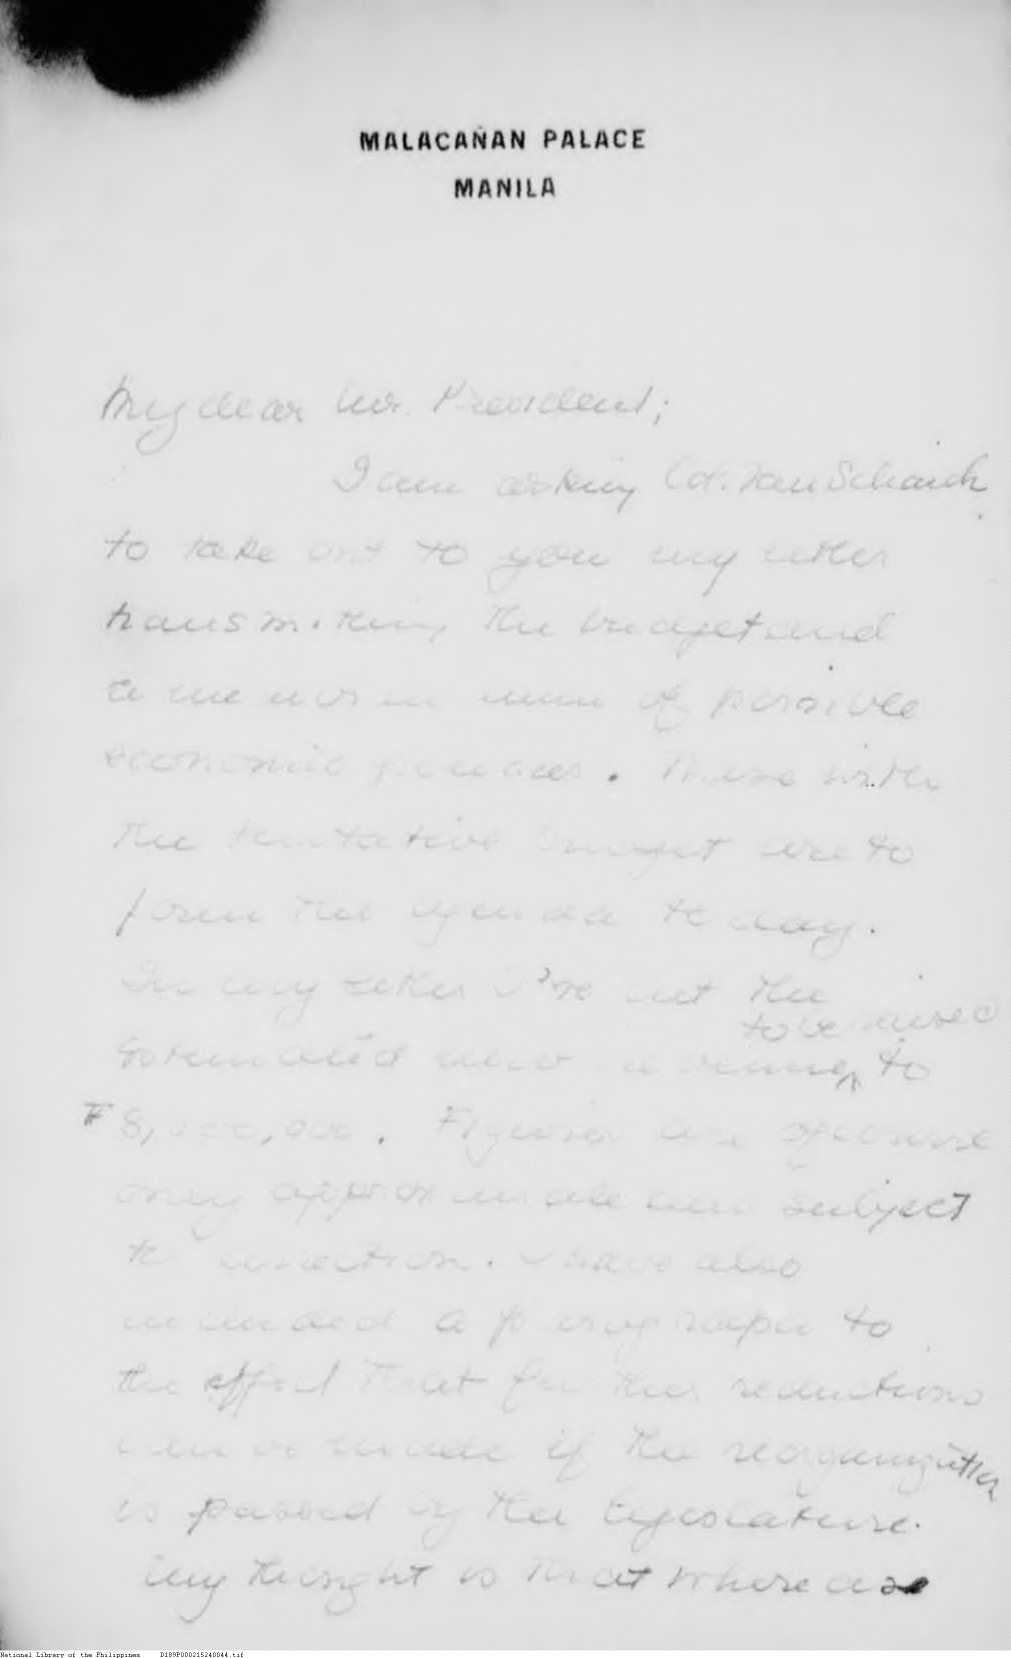 MALACAÑAN PALACE
MANILA
My dear Mr. President;
I am asking Col. Van Schaick
to take out to you my letter
transmitting the budget and
a memorandum of possible
economic . These with
the tentative budget are to
form the agenda today.
In my letter I've put the
to be raised
estimated new revenue to
₱8,000,000. Figures are of course
only approximate and subject
to correction. I have also
included a paragraph to
the effect that further reductions
can be made if the reorganization
is passed by the legislature.
My thought is that whereas
National Library of the Philippines D189P000215240044.tif